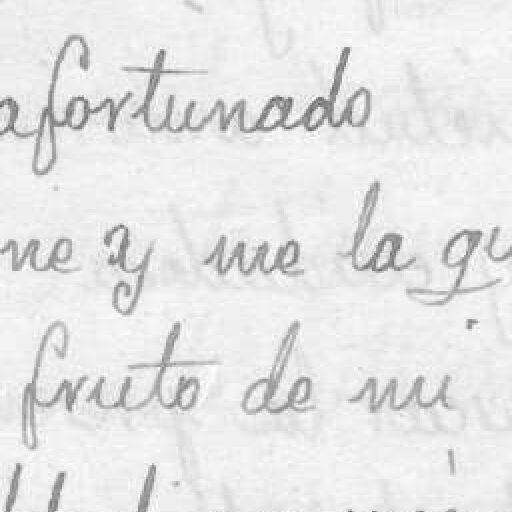 afortunado
ne y me la gu
fruto de mi